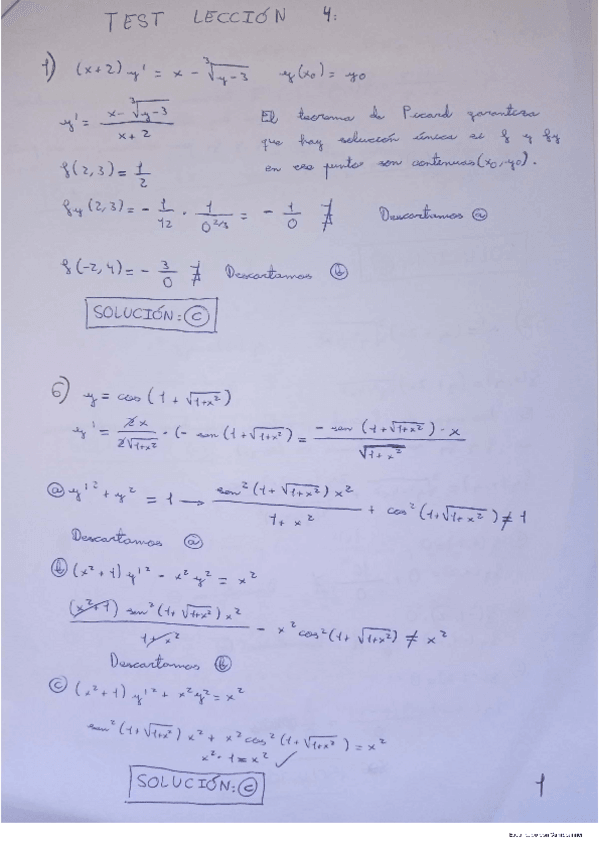 TEST LECCIÓN 4:
1) (x+2) y' = x - ∛(y-3)   y(x₀) = y₀
y' = (x - ∛(y-3)) / (x+2)
El teorema de Picard garantiza
que hay solución única si f y fy
en ese punto son continuas (x₀, y₀).
f(2,3) = 1/2
fy(2,3) = - 1/12 · 1/0^(2/3) = - 1/0 ∄   Descartamos ⓐ
f(-2,4) = - 3/0 ∄   Descartamos ⓑ
SOLUCIÓN: ⓒ
6) y = cos(1 + √(1+x²))
y' = 2x / 2√(1+x²) · (- sen(1+√(1+x²)) = - sen(1+√(1+x²)) · x / √(1+x²)
ⓐ y'² + y² = 1 → sen²(1+√(1+x²)) x² / 1+x² + cos²(1+√(1+x²)) ≠ 1
Descartamos ⓐ
ⓑ (x²+1) y'² - x² y² = x²
(x²+1) sen²(1+√(1+x²)) x² / 1+x² - x² cos²(1+√(1+x²)) ≠ x²
Descartamos ⓑ
ⓒ (x²+1) y'² + x² y² = x²
sen²(1+√(1+x²)) x² + x² cos²(1+√(1+x²)) = x²
x² · 1 = x² ✓
SOLUCIÓN: ⓒ
1